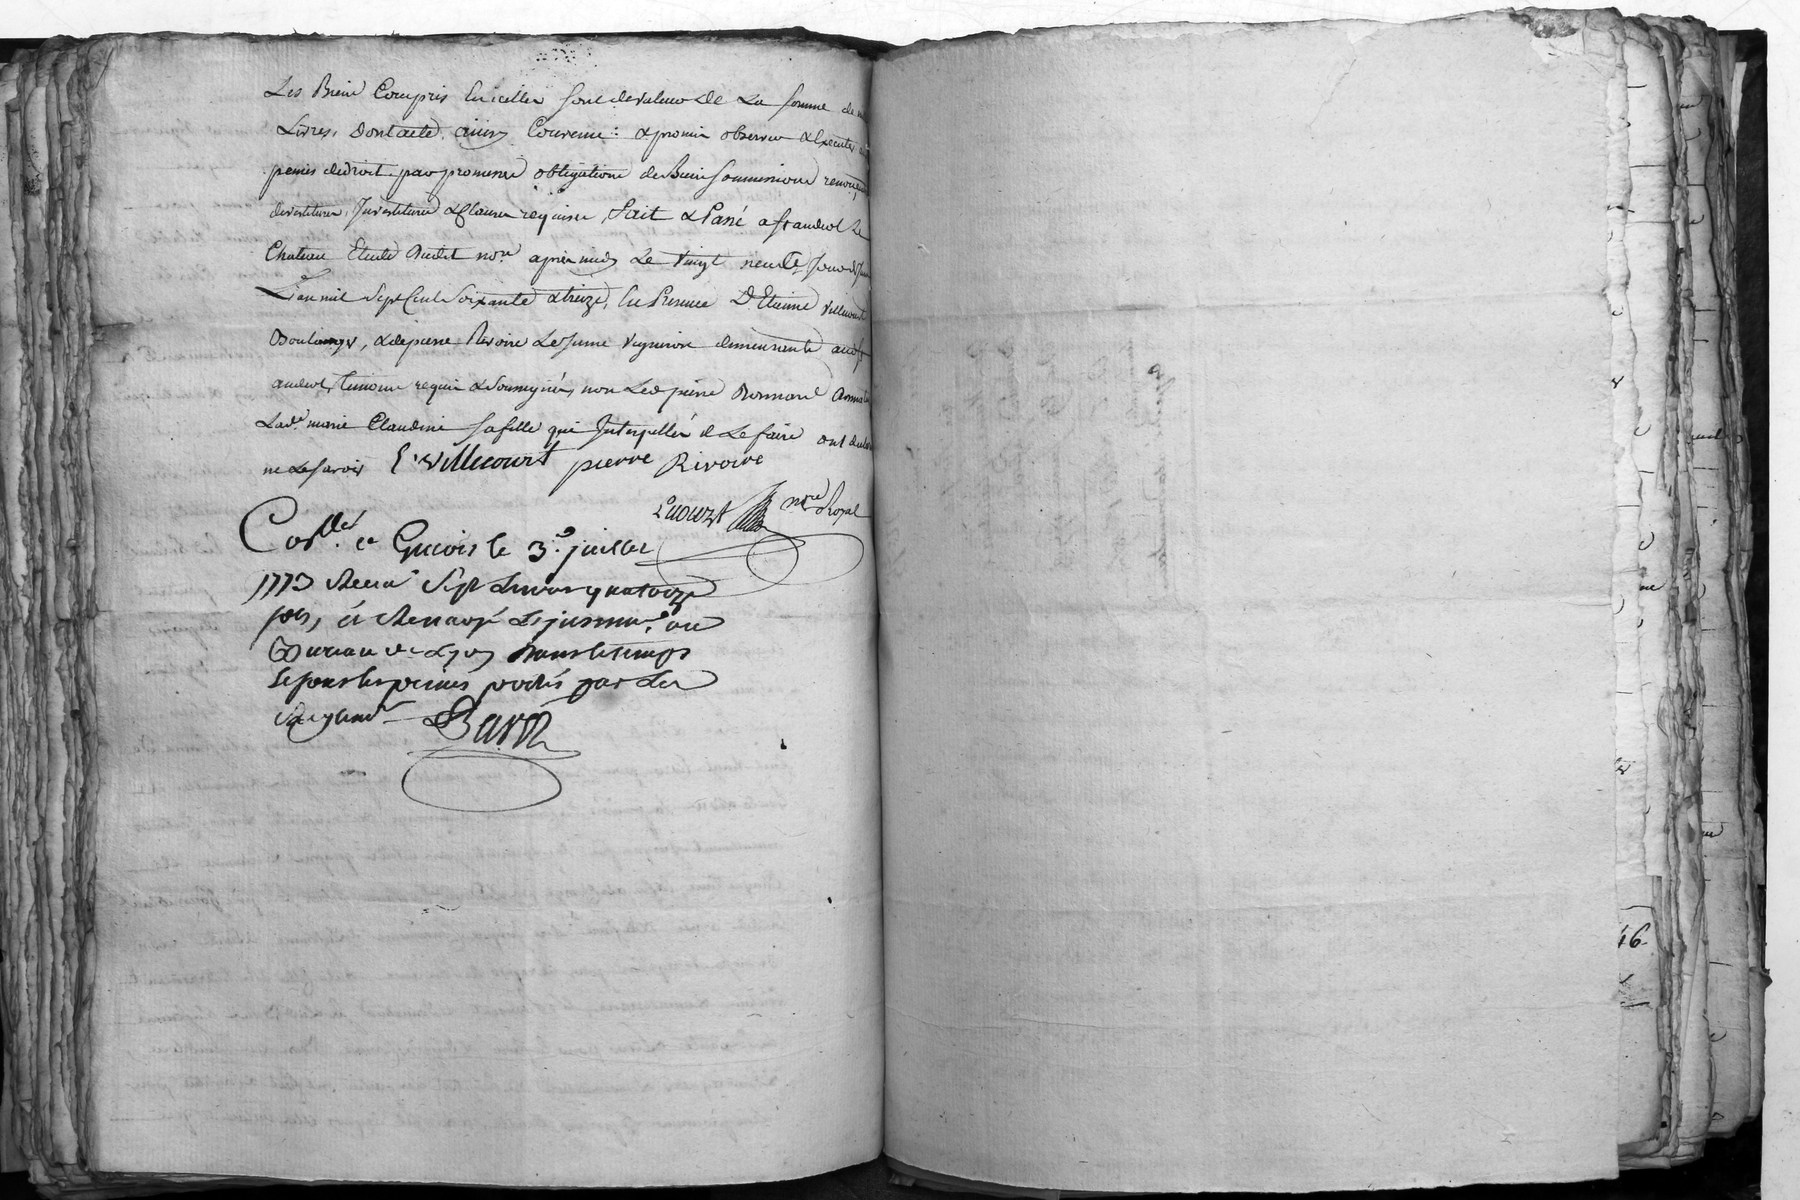 Les Biens Compris En icelles sont de valeur de La somme de
Livres, dont acte, ainsy Convenu : & promis observer & Executer
peines de droit par promesse obligations de Biens soumissions renonç
devestiture, Investiture & Clauses requises, fait & Passé a St andeol Le
Chateau Etude dudit nore apres midy Le vingt neufe Jour de Juin
L'an mil Sept Cent Soixante & treize, En Presence D'Etienne Villecourt
Boulanger, & de pierre Rivoire Le Jeune vigneron demeurants aud. St
andeol temoins requis & Soussignés, non Led. pierre Bonnard
Lade. marie Claudine sa fille qui Interpellés de Le faire ont declaré
ne Le savoir E. villecourt pierre Rivoire
nore Royal
Collé. a Givors le 3e. juillet
1773 Recu Sept Livres quatorze
sols, et Renvoyé L'insinuon. au
Bureau de Lyon dans le temps
et sous les peines portés par Les
Reglemts.